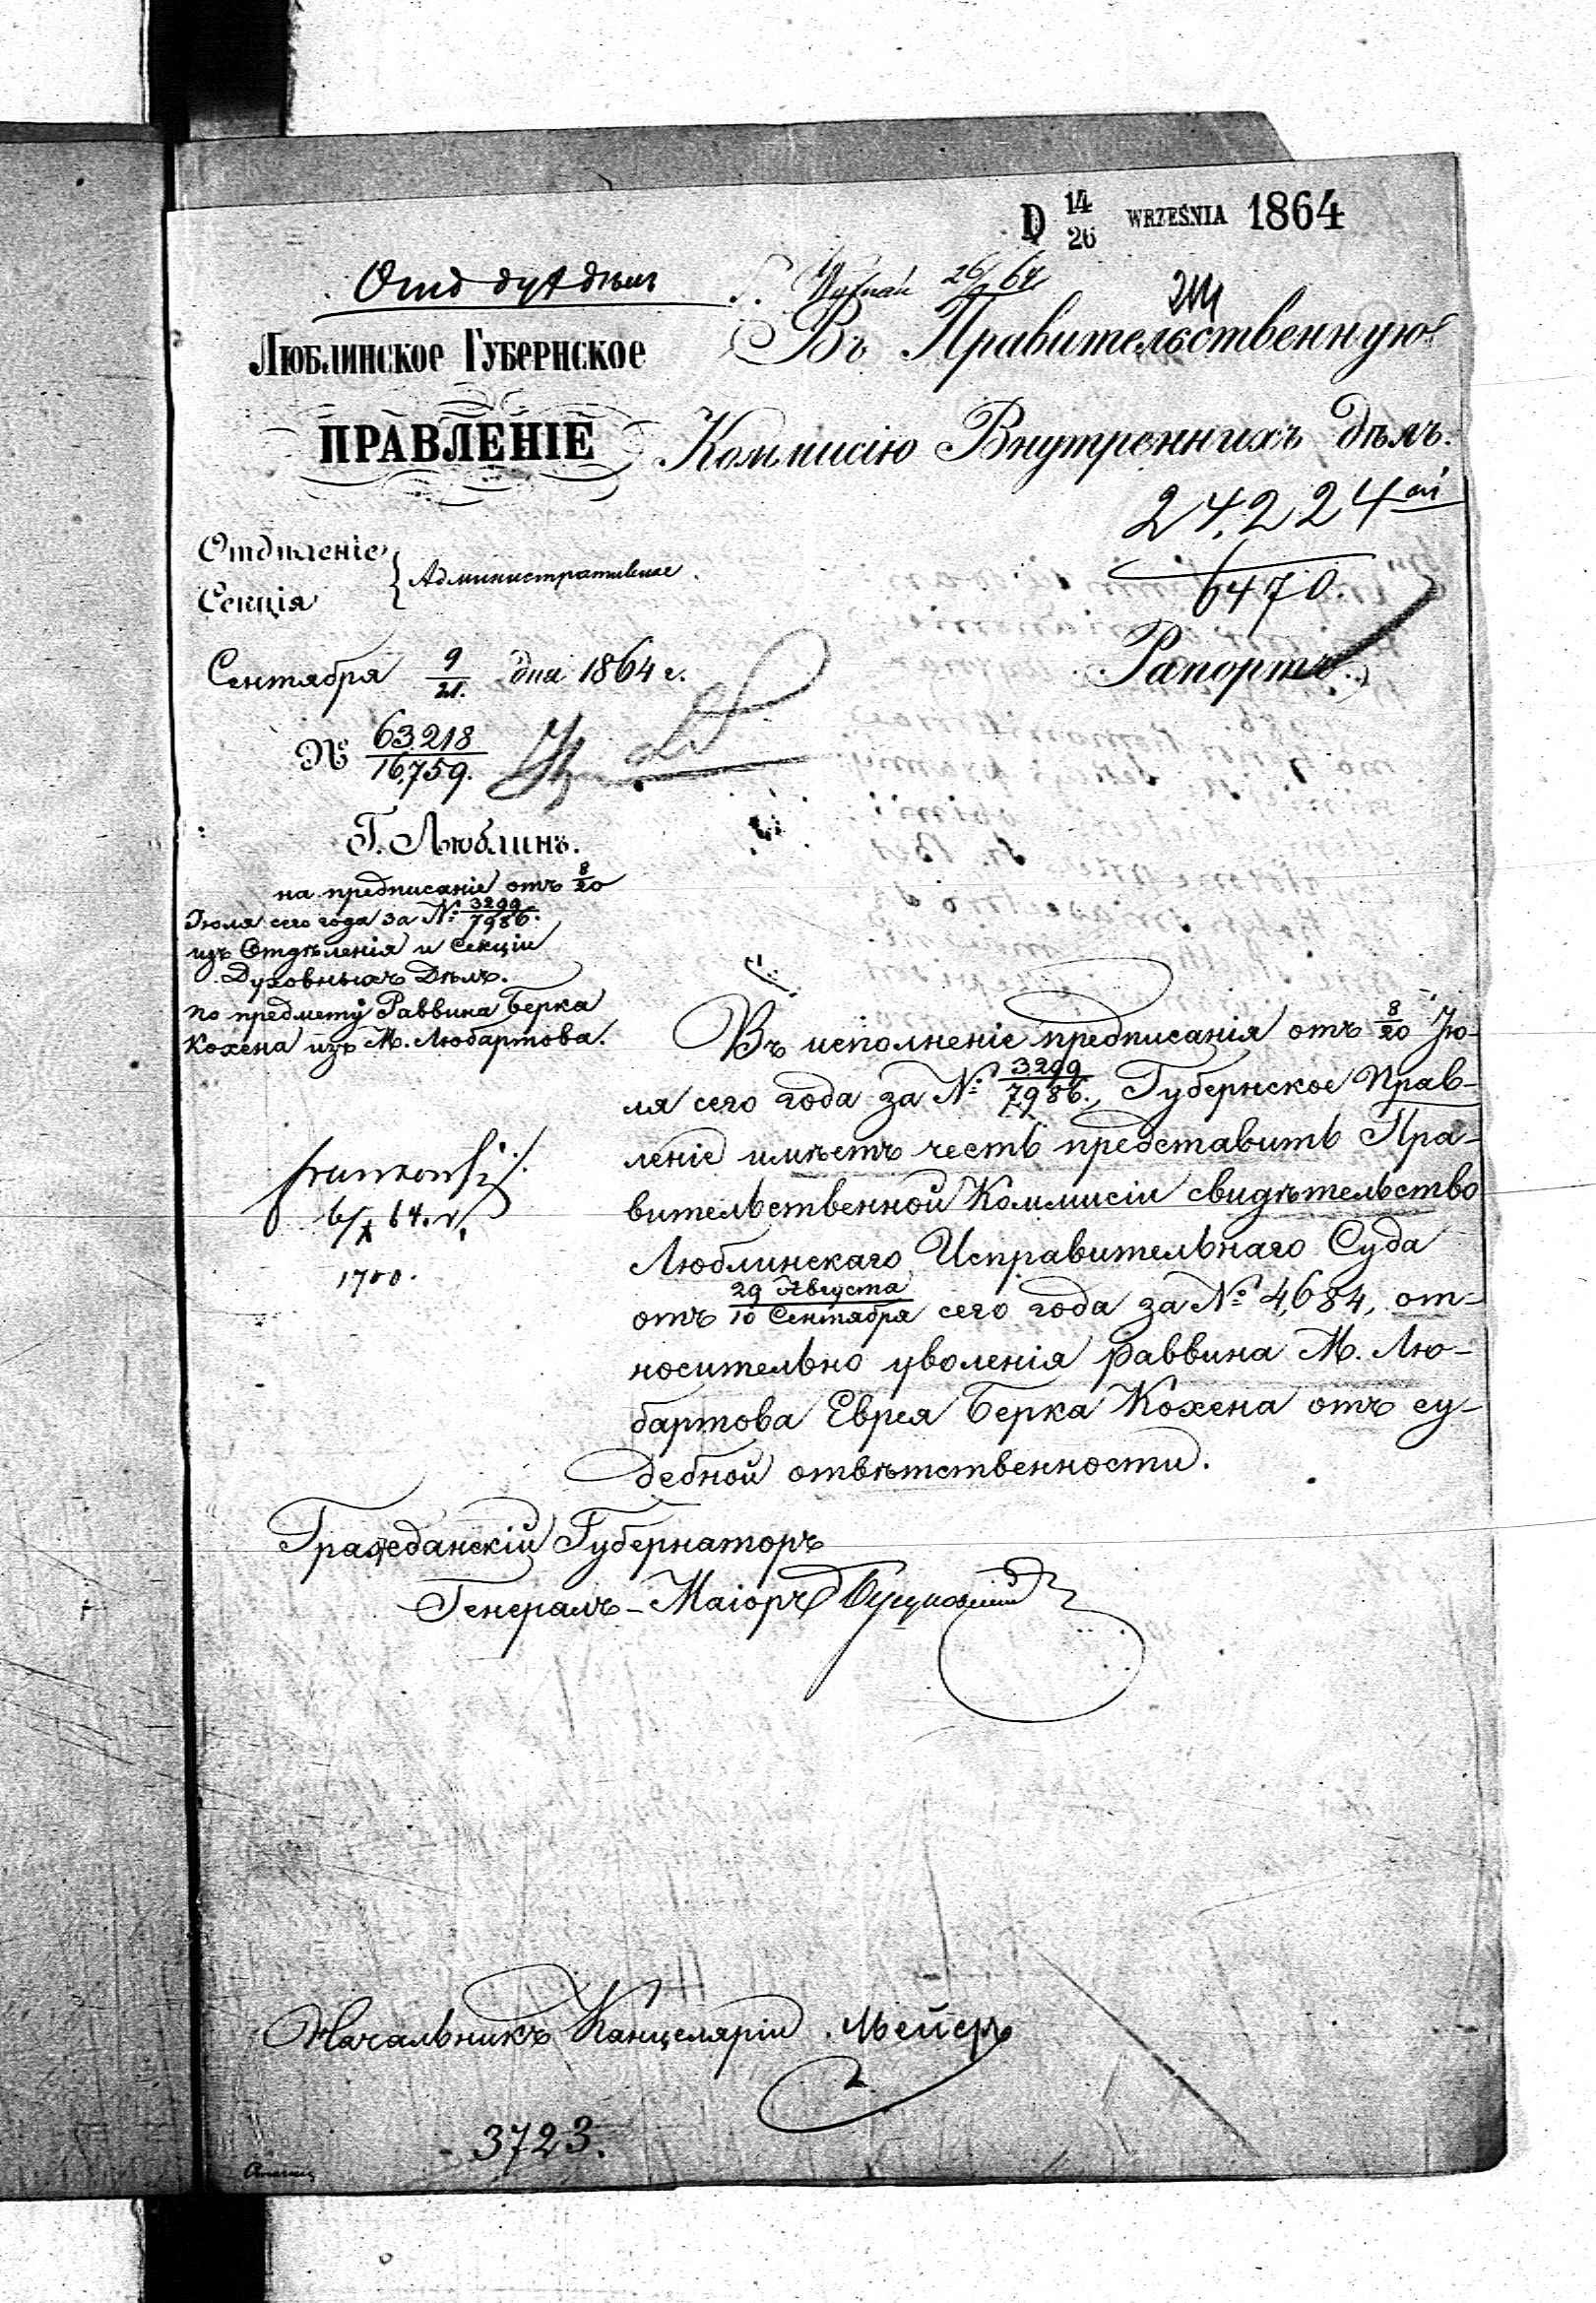 D 14/26 WRZEŚNIA 1864
Отд дух дѣлъ
26/ 64
ЛЮБЛИНСКОЕ ГУБЕРНСКОЕ
ПРАВЛЕНІЕ
Въ Правительственную
Коммисію Внутреннихъ дѣлъ.
24,224
6470.
Рапортъ
Отдѣленіе
Секція
Административное.
Сентября 9/21. дня 1864 г.
№ 63218/16,759.
Г. Люблинъ.
на предписаніе отъ 8/20
Іюля сего года за №: 3299/7986.
изъ Отдѣленія и Секціи
Духовныхъ Дѣлъ.
по предмету Раввина Берка
Кохена изъ М. Любартова.
Въ исполненіе предписанія отъ 8/20 Ію-
ля сего года за №: 3299/7986., Губернское Прав-
леніе имѣетъ честь представить Пра-
вительственной Коммисіи свидѣтельство
Люблинскаго Исправительнаго Суда
отъ 29 Августа/10 Сентября сего года за №: 4,684, от-
носительно уволенія раввина М. Лю-
бартова Еврея Берка Кохена отъ су-
дебной отвѣтственности.
6/X 64. r.
1700.
Гражданскій Губернаторъ
Генералъ-Маіоръ
Начальникъ Канцеляріи Мейеръ
3723.